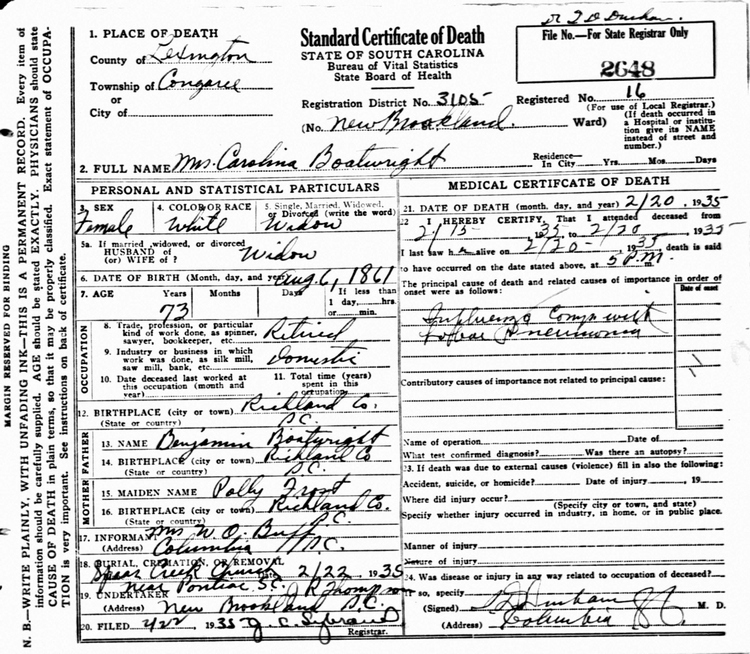 MARGIN RESERVED FOR BINDING
N. B.—WRITE PLAINLY, WITH UNFADING INK—THIS IS A PERMANENT RECORD. Every item of
information should be carefully supplied. AGE should be stated EXACTLY. PHYSICIANS should state
CAUSE OF DEATH in plain terms, so that it may be properly classified. Exact statement of OCCUPA-
TION is very important. See instructions on back of certificate.
1. PLACE OF DEATH
County of Lexington
Township of Congaree
or
City of
Standard Certificate of Death
STATE OF SOUTH CAROLINA
Bureau of Vital Statistics
State Board of Health
File No.—For State Registrar Only
2648
Registration District No. 3105 Registered No. 16
(For use of Local Registrar.)
(No. New Brookland. Ward)
(If death occurred in
a Hospital or institu-
tion give its NAME
instead of street and
number.)
2. FULL NAME Mrs. Carolina Boatwright
Residence—
In City Yrs. Mos. Days
PERSONAL AND STATISTICAL PARTICULARS
3. SEX Female
4. COLOR OR RACE White
5. Single, Married, Widowed,
or Divorced (write the word)
Widow
5a. If married, widowed, or divorced
HUSBAND of
(or) WIFE of ? Widow
6. DATE OF BIRTH (Month, day, and year) Aug 6, 1861
7. AGE Years Months Days If less than
1 day, hrs.
or min.
73
OCCUPATION
8. Trade, profession, or particular
kind of work done, as spinner,
sawyer, bookkeeper, etc. Retired
9. Industry or business in which
work was done, as silk mill,
saw mill, bank, etc. Domestic
10. Date deceased last worked at
this occupation (month and
year)
11. Total time (years)
spent in this
occupation
12. BIRTHPLACE (city or town) Richland Co.
(State or country) S.C.
FATHER
13. NAME Benjamin Boatwright
14. BIRTHPLACE (city or town) Richland Co
(State or country) S.C.
MOTHER
15. MAIDEN NAME Polly Frost
16. BIRTHPLACE (city or town) Richland Co.
(State or country) S.C.
17. INFORMANT Mrs W. O. Buff
(Address) Columbia S.C.
18. BURIAL, CREMATION, OR REMOVAL
Spears Creek Church Date 2/22 1935
near Pontiac S.C.
19. UNDERTAKER R Thompson
(Address) New Brookland S.C.
20. FILED 2/22 1935
Registrar.
MEDICAL CERTIFICATE OF DEATH
21. DATE OF DEATH (month, day, and year) 2/20 1935
22 I HEREBY CERTIFY, That I attended deceased from
2/15 1935 to 2/20 1935
I last saw h alive on 2/20 1935 death is said
to have occurred on the date stated above, at 5 P.M.
The principal cause of death and related causes of importance in order of
onset were as follows:
Date of onset
Influenza Comp with
Lobar Pneumonia
Contributory causes of importance not related to principal cause:
Name of operation Date of
What test confirmed diagnosis? Was there an autopsy?
23. If death was due to external causes (violence) fill in also the following:
Accident, suicide, or homicide? Date of injury 19
Where did injury occur?
(Specify city or town, and state)
Specify whether injury occurred in industry, in home, or in public place.
Manner of injury
Nature of injury
24. Was disease or injury in any way related to occupation of deceased?
If so, specify
(Signed) Durham M. D.
Columbia S.C.